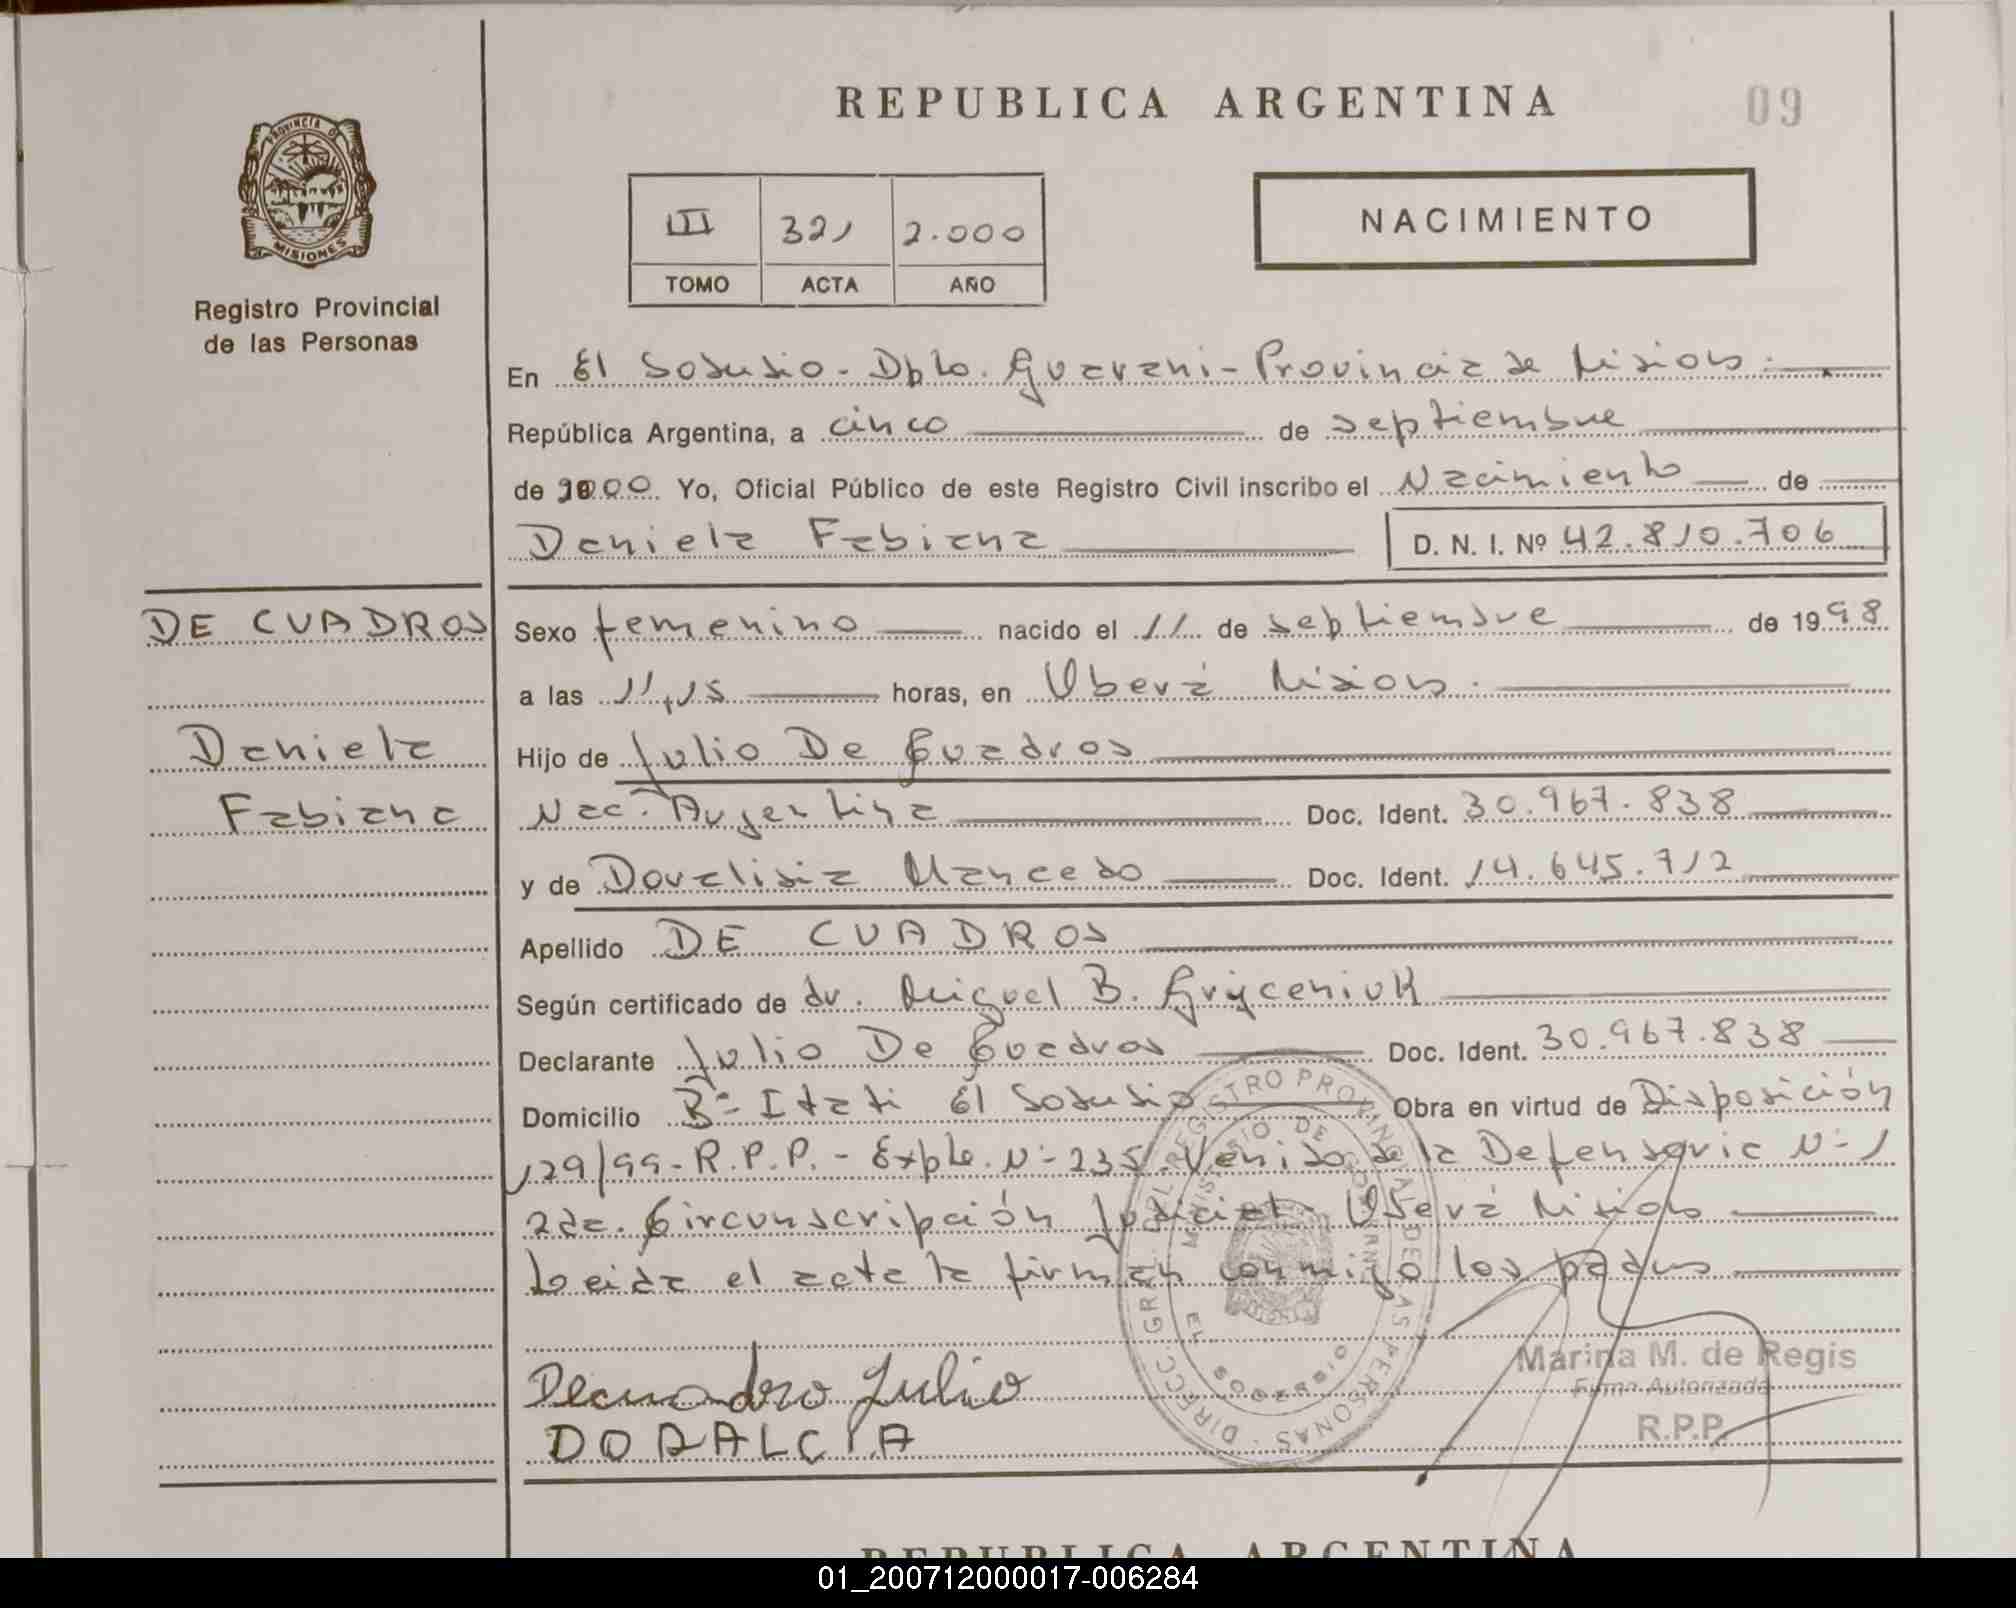 REPUBLICA ARGENTINA
09
PROVINCIA DE MISIONES
Registro Provincial
de las Personas
III 321 2.000
TOMO ACTA AÑO
NACIMIENTO
En El Soberbio - Dpto. Guarani - Provincia de Misiones.
República Argentina, a cinco de septiembre
de 2000 Yo, Oficial Público de este Registro Civil inscribo el Nacimiento de
Daniela Fabiana D. N. I. Nº 42.810.706
DE CUADROS
Daniela
Fabiana
Sexo femenino nacido el 11 de septiembre de 1998
a las 11,15 horas, en Oberá Misiones.
Hijo de Julio De Cuadros
Nac. Argentina Doc. Ident. 30.967.838
y de Doralisia Mancedo Doc. Ident. 14.645.712
Apellido DE CUADROS
Según certificado de dr. Miguel B. Gryceniuk
Declarante Julio De Cuadros Doc. Ident. 30.967.838
Domicilio Bº Itati El Soberbio Obra en virtud de Disposición
129/99 - R.P.P. - Expte. Nº 235. Venido de la Defensoria Nº 1
2da. Circunscripción Judicial - Oberá Misiones
Leida el acta la firman conmigo los padres
Decuadro Julio
DORALCIA
DIRECC. GRAL. DEL REGISTRO PROVINCIAL DE LAS PERSONAS
MINISTERIO DE GOBIERNO
EL SOBERBIO
Marina M. de Regis
Firma Autorizada
R.P.P.
REPUBLICA ARGENTINA
01_200712000017-006284